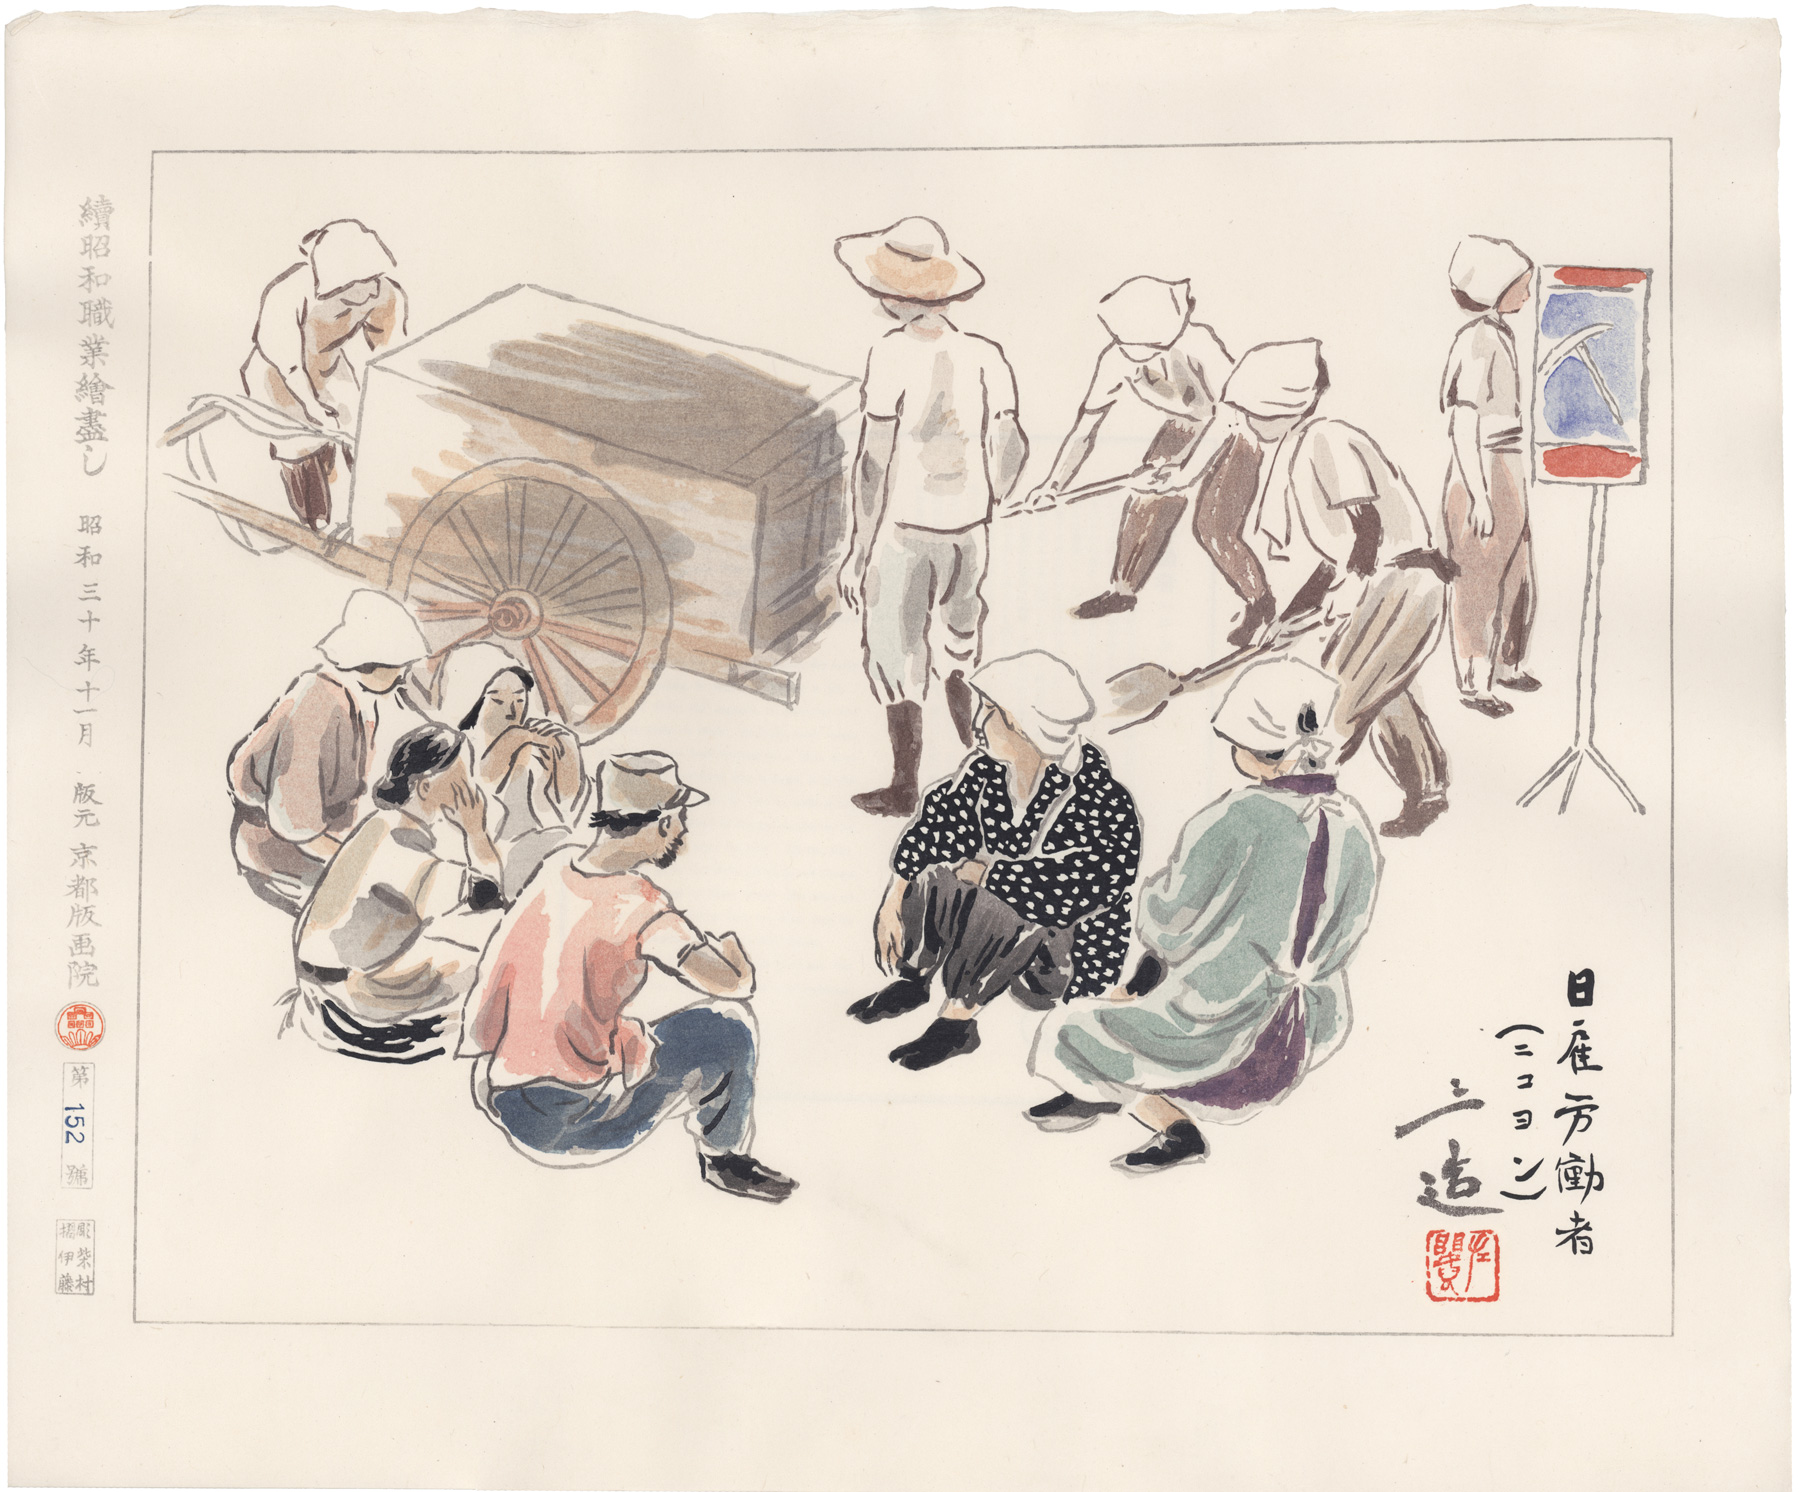 日雇労働者
(ニコヨン)
三造
續昭和職業繪盡し 昭和三十年十一月 版元 京都版画院
第152號
彫 柴村
摺 伊藤